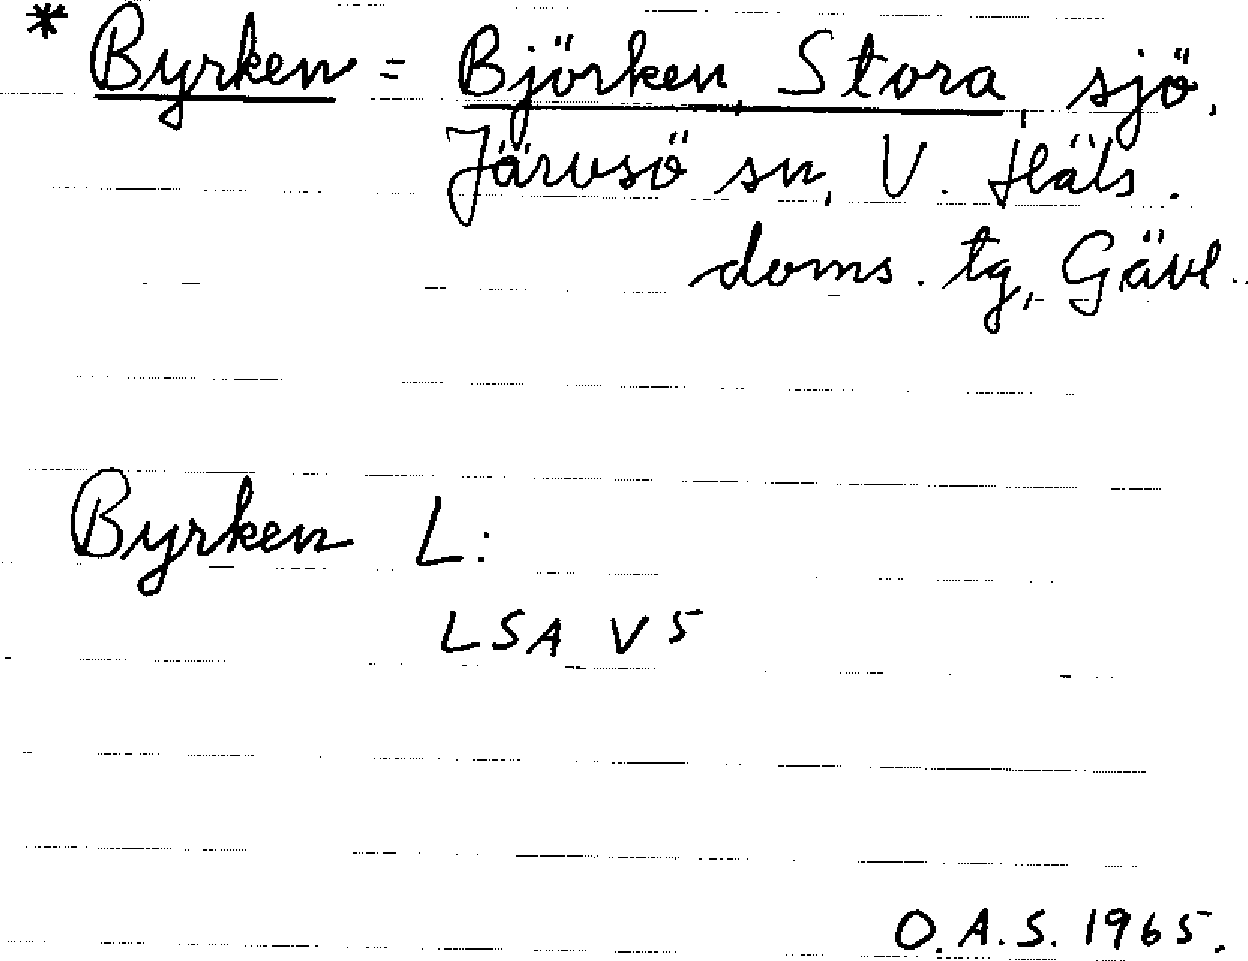 * Byrken = Björken, Stora, sjö,
Järvsö sn, V. Häls.
doms. tg, Gävl.
Byrken L:
LSA V5
O.A.S. 1965.